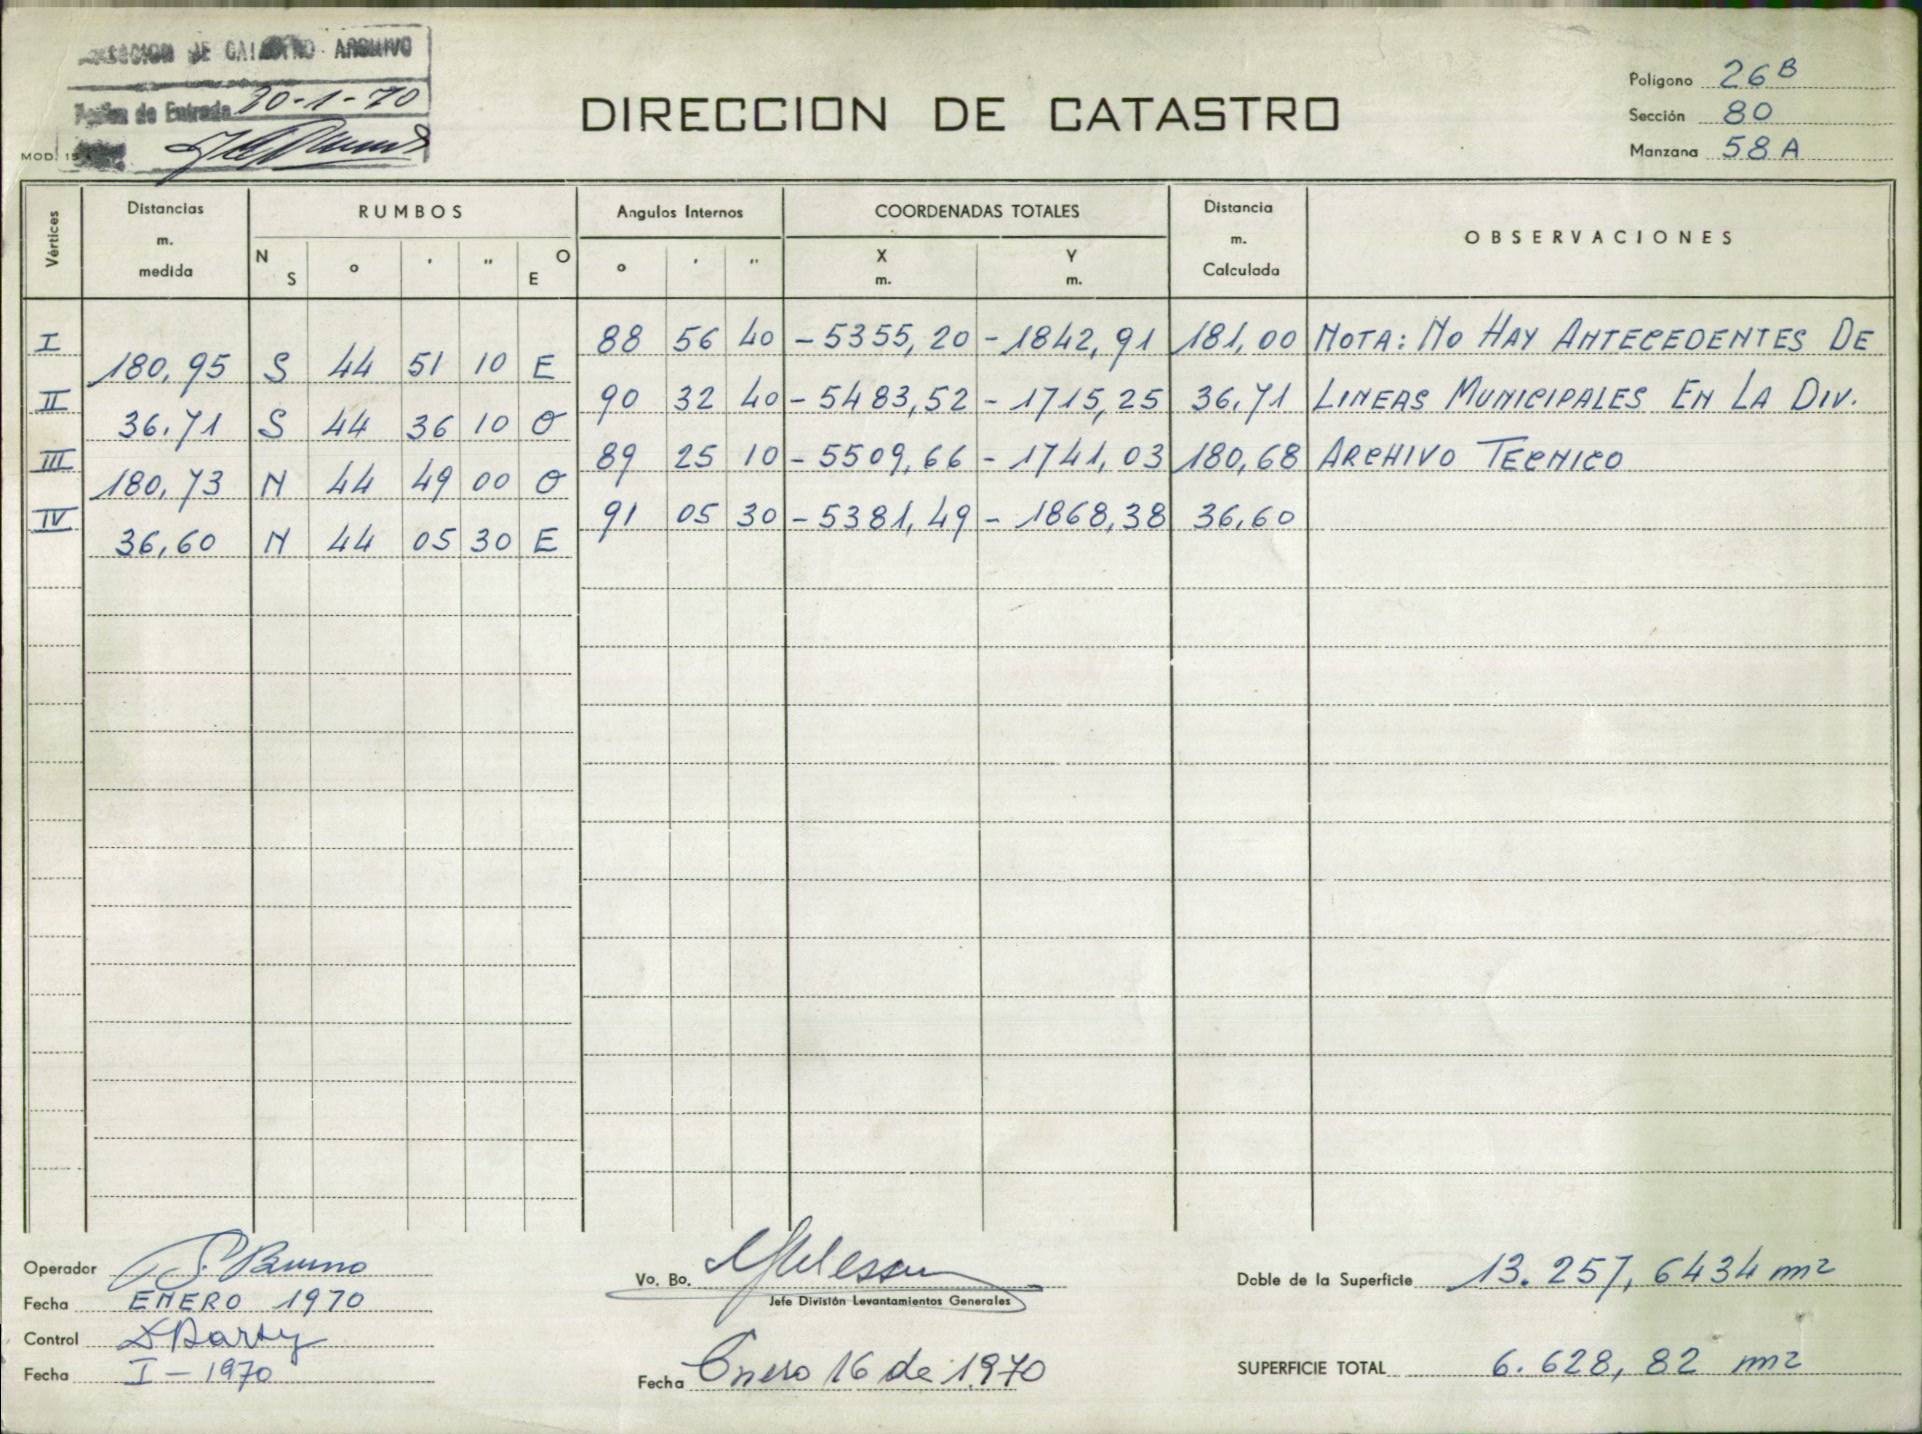 DIRECCION DE CATASTRO ARCHIVO
Fecha de Entrada 30-1-70
MOD. 15
DIRECCION DE CATASTRO
Polígono 26 B
Sección 80
Manzana 58 A
Vértices Distancias m. medida RUMBOS Angulos Internos COORDENADAS TOTALES Distancia m. Calculada OBSERVACIONES
N S o ' " O E o ' " X m. Y m.
I 88 56 40 -5355,20 -1842,91 181,00 NOTA: NO HAY ANTECEDENTES DE
180,95 S 44 51 10 E
II 90 32 40 -5483,52 -1715,25 36,71 LINEAS MUNICIPALES EN LA DIV.
36,71 S 44 36 10 O
III 89 25 10 -5509,66 -1741,03 180,68 ARCHIVO TECNICO
180,73 N 44 49 00 O
IV 91 05 30 -5381,49 -1868,38 36,60
36,60 N 44 05 30 E
Operador S. Bruno
Fecha ENERO 1970
Control
Fecha I-1970
Vo. Bo.
Jefe División Levantamientos Generales
Fecha Enero 16 de 1970
Doble de la Superficie 13.257,6434 m2
SUPERFICIE TOTAL 6.628,82 m2